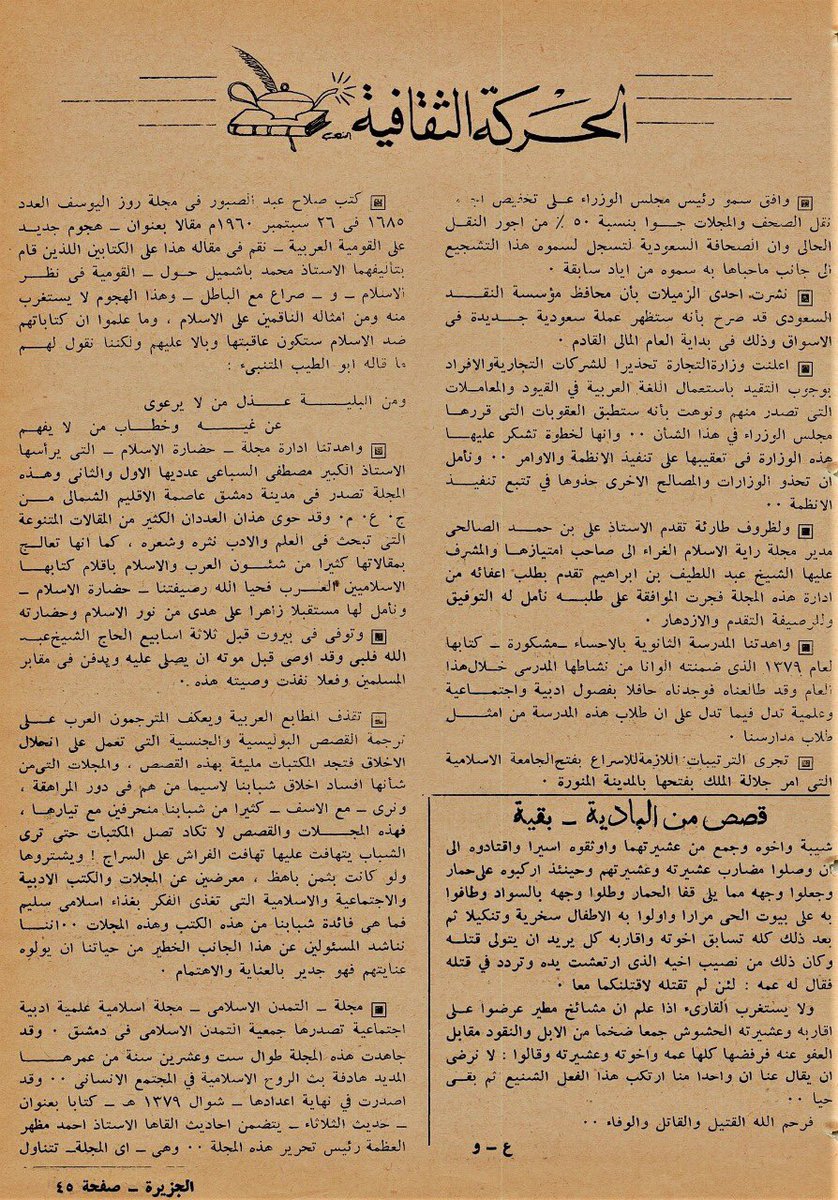 الحركة الثقافية
▣ وافق سمو رئيس مجلس الوزراء على تخفيض اجور
نقل الصحف والمجلات جوا بنسبة ٥٠ ٪ من اجور النقل
الحالى وان الصحافة السعودية لتسجل لسموه هذا التشجيع
الى جانب ماحباها به سموه من اياد سابقة ٠
▣ نشرت احدى الزميلات بأن محافظ مؤسسة النقد
السعودى قد صرح بأنه ستظهر عملة سعودية جديدة فى
الاسواق وذلك فى بداية العام المالى القادم ٠
▣ اعلنت وزارة التجارة تحذيرا للشركات التجارية والافراد
بوجوب التقيد باستعمال اللغة العربية في القيود والمعاملات
التى تصدر منهم ونوهت بأنه ستطبق العقوبات التى قررها
مجلس الوزراء في هذا الشأن ٠٠ وانها لخطوة تشكر عليها
هذه الوزارة فى تعقيبها على تنفيذ الانظمة والاوامر ٠٠ ونأمل
ان تحذو الوزارات والمصالح الاخرى حذوها في تتبع تنفيذ
الانظمة ٠٠
▣ ولظروف طارئة تقدم الاستاذ على بن حمد الصالحى
مدير مجلة راية الاسلام الغراء الى صاحب امتيازها والمشرف
عليها الشيخ عبد اللطيف بن ابراهيم تقدم بطلب اعفائه من
ادارة هذه المجلة فجرت الموافقة على طلبه نأمل له التوفيق
وللرصيفة التقدم والازدهار ٠
▣ واهدتنا المدرسة الثانوية بالاحساء ـ مشكورة ـ كتابها
لعام ١٣٧٩ الذى ضمنته الوانا من نشاطها المدرسى خلال هذا
العام وقد طالعناه فوجدناه حافلا بفصول ادبية واجتماعية
وعلمية تدل فيما تدل على ان طلاب هذه المدرسة من امثل
طلاب مدارسنا ٠
▣ تجرى الترتيبات اللازمة للاسراع بفتح الجامعة الاسلامية
التى امر جلالة الملك بفتحها بالمدينة المنورة ٠
قصص من البادية ـ بقية
شيبة واخوه وجمع من عشيرتهما واوثقوه اسيرا واقتادوه الى
ان وصلوا مضارب عشيرته وعشيرتهم وحينئذ اركبوه على حمار
وجعلوا وجهه مما يلى قفا الحمار وطلوا وجهه بالسواد وطافوا
به على بيوت الحى مرارا واولوا به الاطفال سخرية وتنكيلا ثم
بعد ذلك كله تسابق اخوته واقاربه كل يريد ان يتولى قتله
وكان ذلك من نصيب اخيه الذى ارتعشت يده وتردد في قتله
فقال له عمه : لئن لم تقتله لاقتلنكما معا ٠
ولا يستغرب القارىء اذا علم ان مشائخ مطير عرضوا على
اقاربه وعشيرته الحشوش جمعا ضخما من الابل والنقود مقابل
العفو عنه فرفضها كلها عمه واخوته وعشيرته وقالوا : لا نرضى
ان يقال عنا ان واحدا منا ارتكب هذا الفعل الشنيع ثم بقى
حيا ٠٠
فرحم الله القتيل والقاتل والوفاء ٠٠
ع ـ و
▣ كتب صلاح عبد الصبور فى مجلة روز اليوسف العدد
١٦٨٥ فى ٢٦ سبتمبر ١٩٦٠م مقالا بعنوان ـ هجوم جديد
على القومية العربية ـ نقم فى مقاله هذا على الكتابين اللذين قام
بتأليفهما الاستاذ محمد باشميل حول ـ القومية فى نظر
الاسلام ـ و ـ صراع مع الباطل ـ وهذا الهجوم لا يستغرب
منه ومن امثاله الناقمين على الاسلام ، وما علموا ان كتاباتهم
ضد الاسلام ستكون عاقبتها وبالا عليهم ولكننا نقول لهم
ما قاله ابو الطيب المتنبىء :
ومن البلية عذل من لا يرعوى
عن غيه وخطاب من لا يفهم
▣ واهدتنا ادارة مجلة ـ حضارة الاسلام ـ التى يرأسها
الاستاذ الكبير مصطفى السباعى عدديها الاول والثانى وهذه
المجلة تصدر فى مدينة دمشق عاصمة الاقليم الشمالى من
ج٠ ع٠ م٠ وقد حوى هذان العددان الكثير من المقالات المتنوعة
التى تبحث فى العلم والادب نثره وشعره ، كما انها تعالج
بمقالاتها كثيرا من شئون العرب والاسلام باقلام كتابها
الاسلاميين العرب فحيا الله رصيفتنا ـ حضارة الاسلام ـ
ونأمل لها مستقبلا زاهرا على هدى من نور الاسلام وحضارته
▣ وتوفى فى بيروت قبل ثلاثة اسابيع الحاج الشيخ عبد
الله فلبى وقد اوصى قبل موته ان يصلى عليه ويدفن فى مقابر
المسلمين وفعلا نفذت وصيته هذه ٠
▣ تقذف المطابع العربية ويعكف المترجمون العرب على
ترجمة القصص البوليسية والجنسية التى تعمل على انحلال
الاخلاق فتجد المكتبات مليئة بهذه القصص ، والمجلات التى من
شأنها افساد اخلاق شبابنا لاسيما من هم فى دور المراهقة ،
ونرى ـ مع الاسف ـ كثيرا من شبابنا منحرفين مع تيارها ،
فهذه المجلات والقصص لا تكاد تصل المكتبات حتى ترى
الشباب يتهافت عليها تهافت الفراش على السراج ! ويشتروها
ولو كانت بثمن باهظ ، معرضين عن المجلات والكتب الادبية
والاجتماعية والاسلامية التى تغذى الفكر بغذاء اسلامى سليم
فما هى فائدة شبابنا من هذه الكتب وهذه المجلات ٠٠ اننا
نناشد المسئولين عن هذا الجانب الخطير من حياتنا ان يولوه
عنايتهم فهو جدير بالعناية والاهتمام ٠
▣ مجلة ـ التمدن الاسلامى ـ مجلة اسلامية علمية ادبية
اجتماعية تصدرها جمعية التمدن الاسلامى فى دمشق ٠ وقد
جاهدت هذه المجلة طوال ست وعشرين سنة من عمرها
المديد هادفة بث الروح الاسلامية في المجتمع الانسانى ٠٠ وقد
اصدرت في نهاية اعدادها ـ شوال ١٣٧٩ هـ ـ كتابا بعنوان
ـ حديث الثلاثاء ـ يتضمن احاديث القاها الاستاذ احمد مظهر
العظمة رئيس تحرير هذه المجلة ٠٠ وهى ـ اى المجلة ـ تتناول
الجزيرة ـ صفحة ٤٥